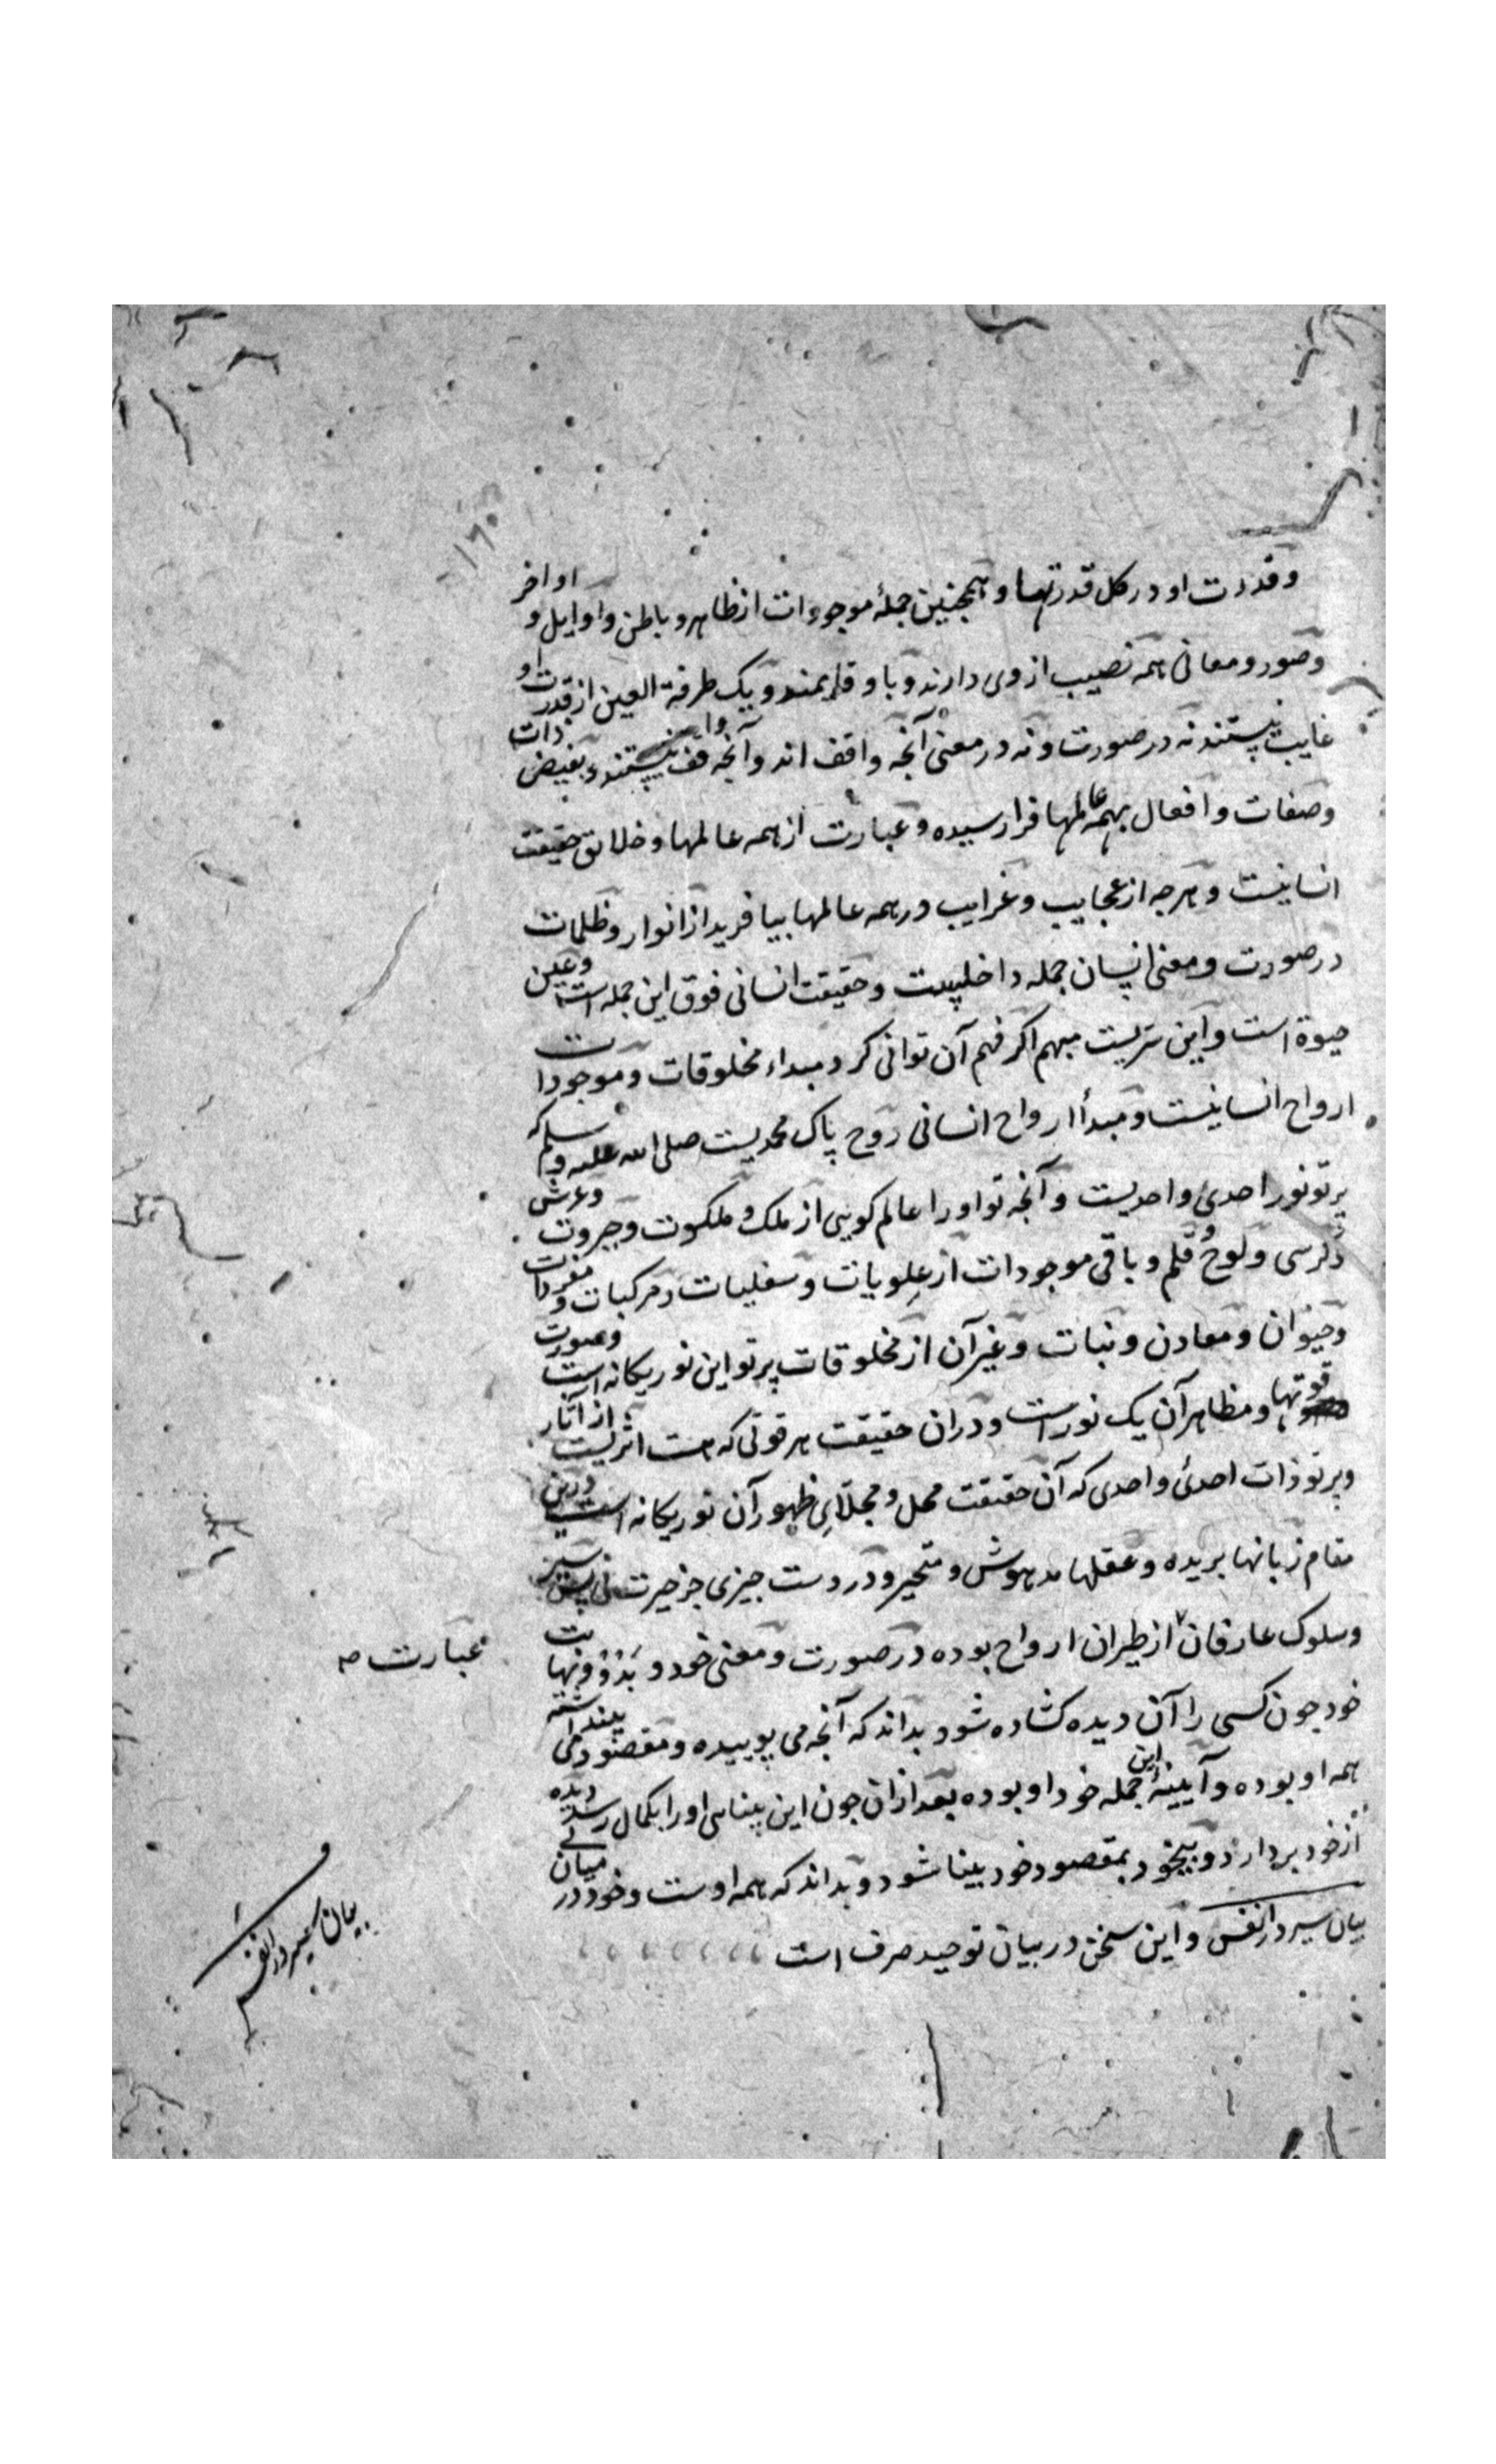 ۱۶۰
وقدرت او در کل قدرتها و همچنین جملهٔ موجودات از ظاهر و باطن و اوایل و اواخر
وصور و معانی همه نصیب از وی دارند و با و قایمند و یک طرفة العین از قدرت او
غایب نیستند نه در صورت و نه در معنی آنچه واقف اند و آنچه واقف نیستند و بفیض ذات
وصفات و افعال بهمه عالمها فرا رسیده و عبارت از همه عالمها و خلایق حقیقت
انسانیست و هرچه از عجایب و غرایب در همه عالمها بیافرید از انوار و ظلمات
در صورت و معنی انسان جمله داخلیست و حقیقت انسانی فوق این جمله است و عین
حیوة است و این سریست مبهم اگر فهم آن توانی کرد مبداء مخلوقات و موجودات
ارواح انسانیست و مبدأ ارواح انسانی روح پاک محمدیست صلی الله علیه وسلم که
پرتو نور احدی و احدیست و آنچه تو او را عالم گویی از ملک و ملکوت و جبروت و عرش
و کرسی و لوح و قلم و باقی موجودات از علویات و سفلیات و مرکبات و مفردات
وحیوان و معادن و نبات و غیر آن از مخلوقات پرتو این نور یگانه است و صورت
قوتها و مظاهر آن یک نور است و در آن حقیقت هر قوتی که هست اثریست از آثار
و پرتو ذات احدی و احدی که آن حقیقت محل و مجلّای ظهور آن نور یگانه است و درین
مقام زبانها بریده و عقلها مدهوش و متحیر و در دست چیزی جز حیرت نی سیر
وسلوک عارفان از طیران ارواح بوده در صورت و معنی خود و بدو و نهایت
خود چون کسی را آن دیده گشاده شود بداند که آنچه می پوییده و مقصود می پنداشته
همه او بوده و آیینهٔ این جمله خود او بوده بعد از آن چون این بینایی او را بکمال رسد دیده
از خود بردارد و بیخود بمقصود خود بینا شود و بداند که همه اوست و خود در میان نی
بیان سیر در انفس و این سخن در بیان توحید صرف است
عبارت
بیان سیر در انفس